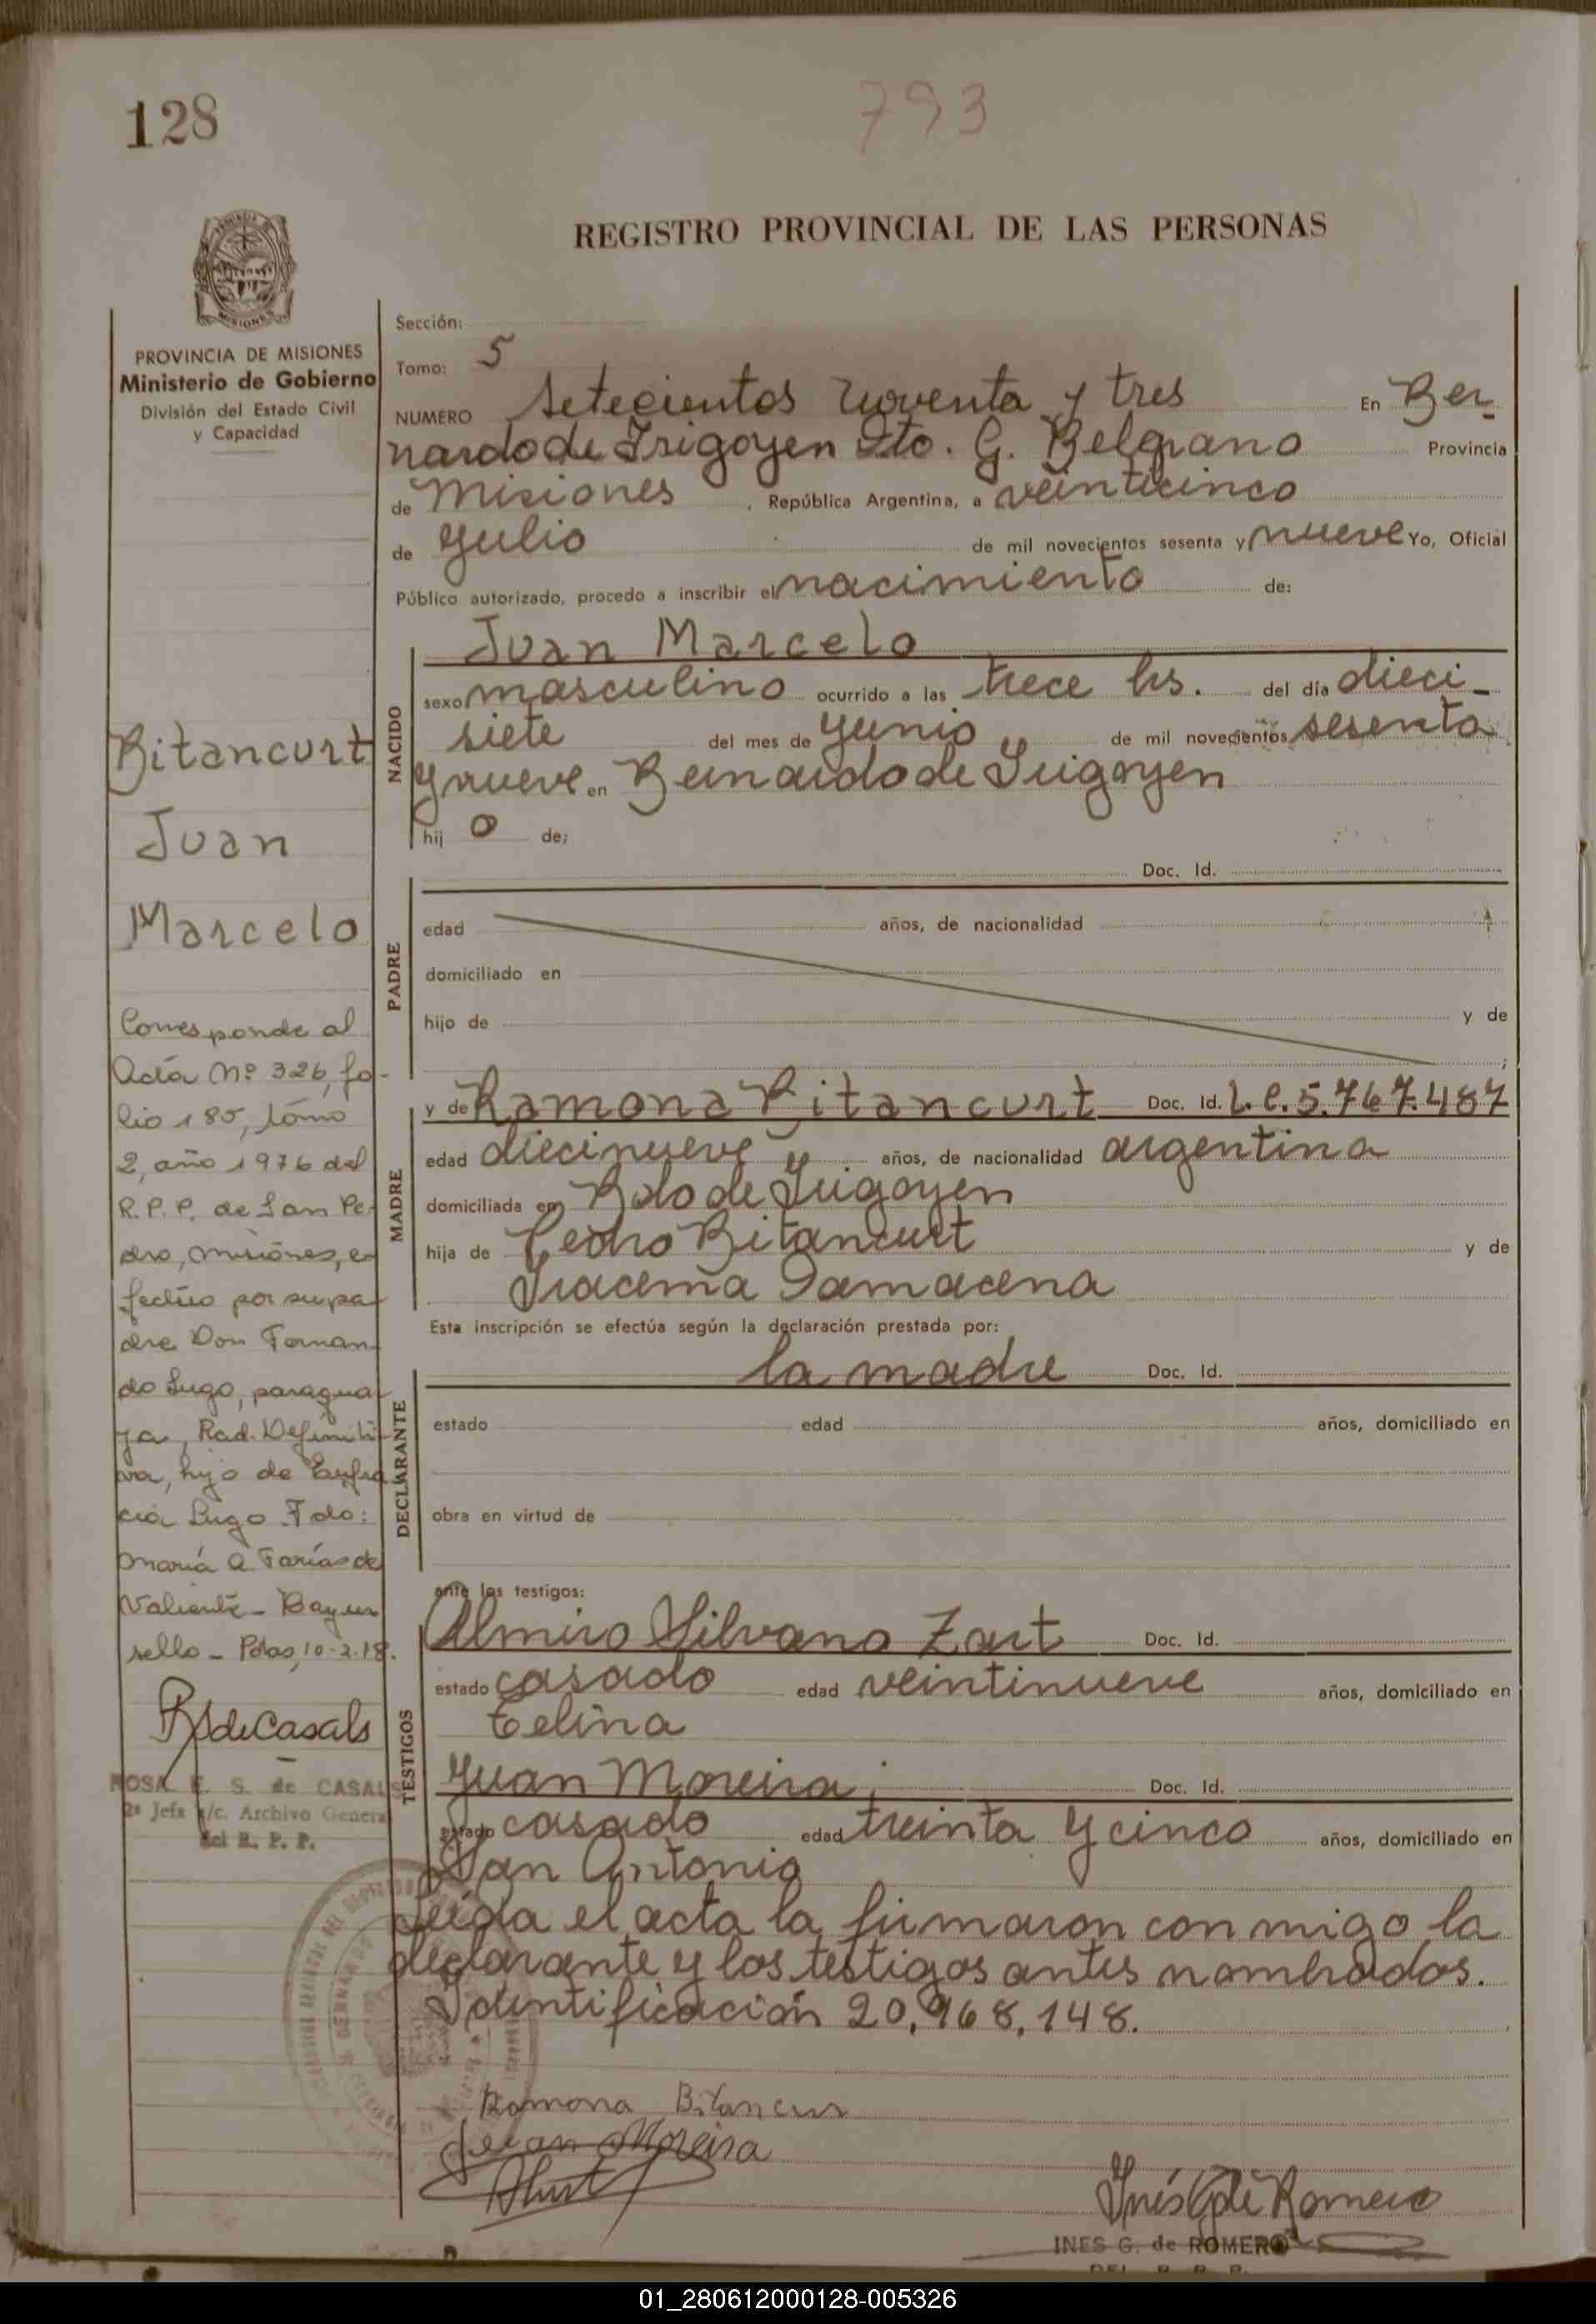 128
793
REGISTRO PROVINCIAL DE LAS PERSONAS
PROVINCIA DE MISIONES
Ministerio de Gobierno
División del Estado Civil
y Capacidad
Bitancurt
Juan
Marcelo
Corresponde al
Acta Nº 326, fo-
lio 185, tomo
2, año 1976 del
R.P.P. de San Pe-
dro, Misiones, e-
fectúo por su pa-
dre Don Fernan-
do Lugo, paragua-
ya, Rad. Definiti-
va, hijo de
Lugo. Fdo:
María A. Farías de
Valiente - Hay un
sello - Pdas, 10-2-78.
RSdeCasals
ROSA E. S. de CASALS
2ª Jefa a/c. Archivo General
del R. P. P.
Sección:
Tomo: 5
NUMERO Setecientos noventa y tres En Ber-
nardo de Irigoyen Dto. G. Belgrano Provincia
de Misiones, República Argentina, a veinticinco
de Julio de mil novecientos sesenta y nueve Yo, Oficial
Público autorizado, procedo a inscribir el nacimiento de:
NACIDO
Juan Marcelo
sexo masculino ocurrido a las trece hs. del día dieci-
siete del mes de Junio de mil novecientos sesenta
y nueve en Bernardo de Irigoyen
hij o de;
PADRE
Doc. Id.
edad años, de nacionalidad
domiciliado en
hijo de y de
;
MADRE
y de Ramona Bitancurt Doc. Id. L.C. 5.767.487
edad diecinueve años, de nacionalidad argentina
domiciliada en Bdo de Irigoyen
hija de Pedro Bitancurt y de
Iracema Damacena
Esta inscripción se efectúa según la declaración prestada por:
DECLARANTE
la madre Doc. Id.
estado edad años, domiciliado en
obra en virtud de
ante los testigos:
TESTIGOS
Almiro Silvano Zart Doc. Id.
estado casado edad veintinueve años, domiciliado en
Celina
Juan Moreira; Doc. Id.
estado casado edad treinta y cinco años, domiciliado en
San Antonio
Leída el acta la firmaron con migo la
declarante y los testigos antes nombrados.
Identificación 20.968.148.
Ramona Bitancur
Juan Moreira
Inés G de Romero
INES G. de ROMERO
DEL R. P. P.
01_280612000128-005326